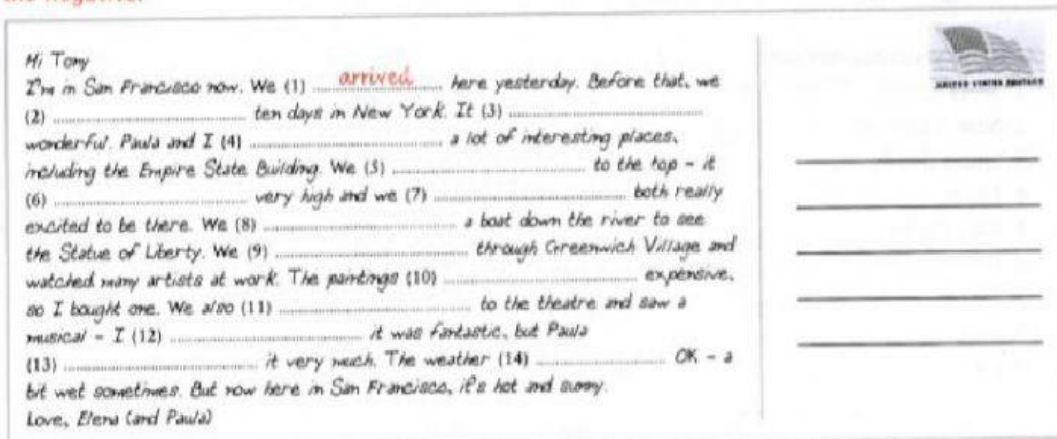 the negative.
Hi Tony
I'm in San Francisco now. We (1) arrived here yesterday. Before that, we
(2) ten days in New York. It (3)
wonderful. Paula and I (4) a lot of interesting places,
including the Empire State Building. We (5) to the top – it
(6) very high and we (7) both really
excited to be there. We (8) a boat down the river to see
the Statue of Liberty. We (9) through Greenwich Village and
watched many artists at work. The paintings (10) expensive,
so I bought one. We also (11) to the theatre and saw a
musical – I (12) it was fantastic, but Paula
(13) it very much. The weather (14) OK – a
bit wet sometimes. But now here in San Francisco, it's hot and sunny.
Love, Elena (and Paula)
UNITED STATES POSTAGE